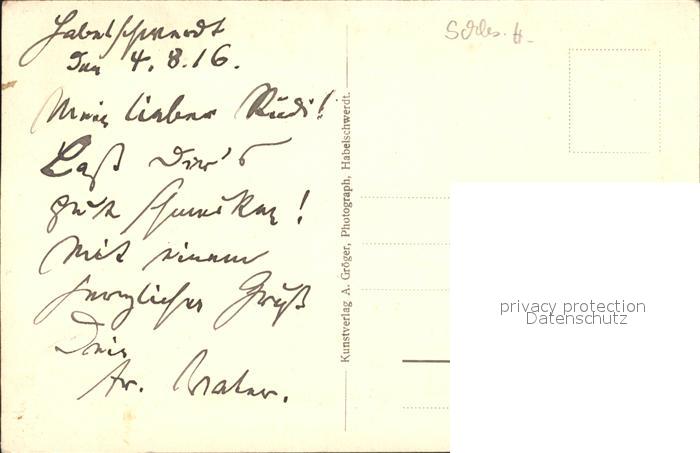 Habelschwerdt
den 4.8.16.
Mein lieber Rudi!
Laß Dir's
gut schmecken!
Mit einem
herzlichen Gruß
Dein
Schles.
Kunstverlag A. Gröger, Photograph, Habelschwerdt.
privacy protection
Datenschutz